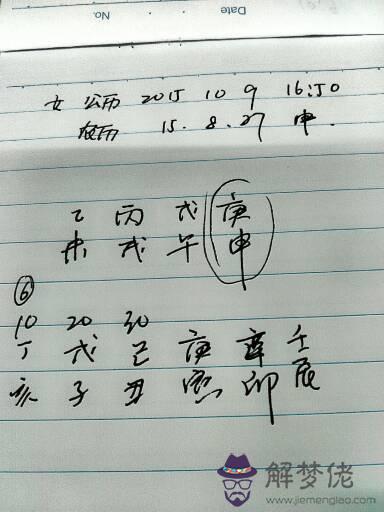 No.
Date
女 公历 2015 10 9 16:50
农历 15.8.27 申.
乙 丙 戊 庚
未 戌 午 申
⑥
10 20 30
丁 戊 己 庚 辛 壬
亥 子 丑 寅 卯 辰
解梦佬
www.jiemenglao.com